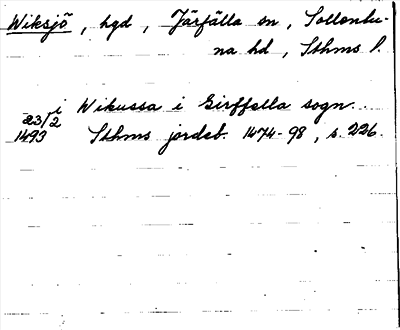 Wiksjö, hgd, Järfälla sn, Sollentu-
na hd, Sthms l.
i Wikussa i Girffella sogn.
23/2
1493 Sthms jordeb. 1474-98, s. 226.